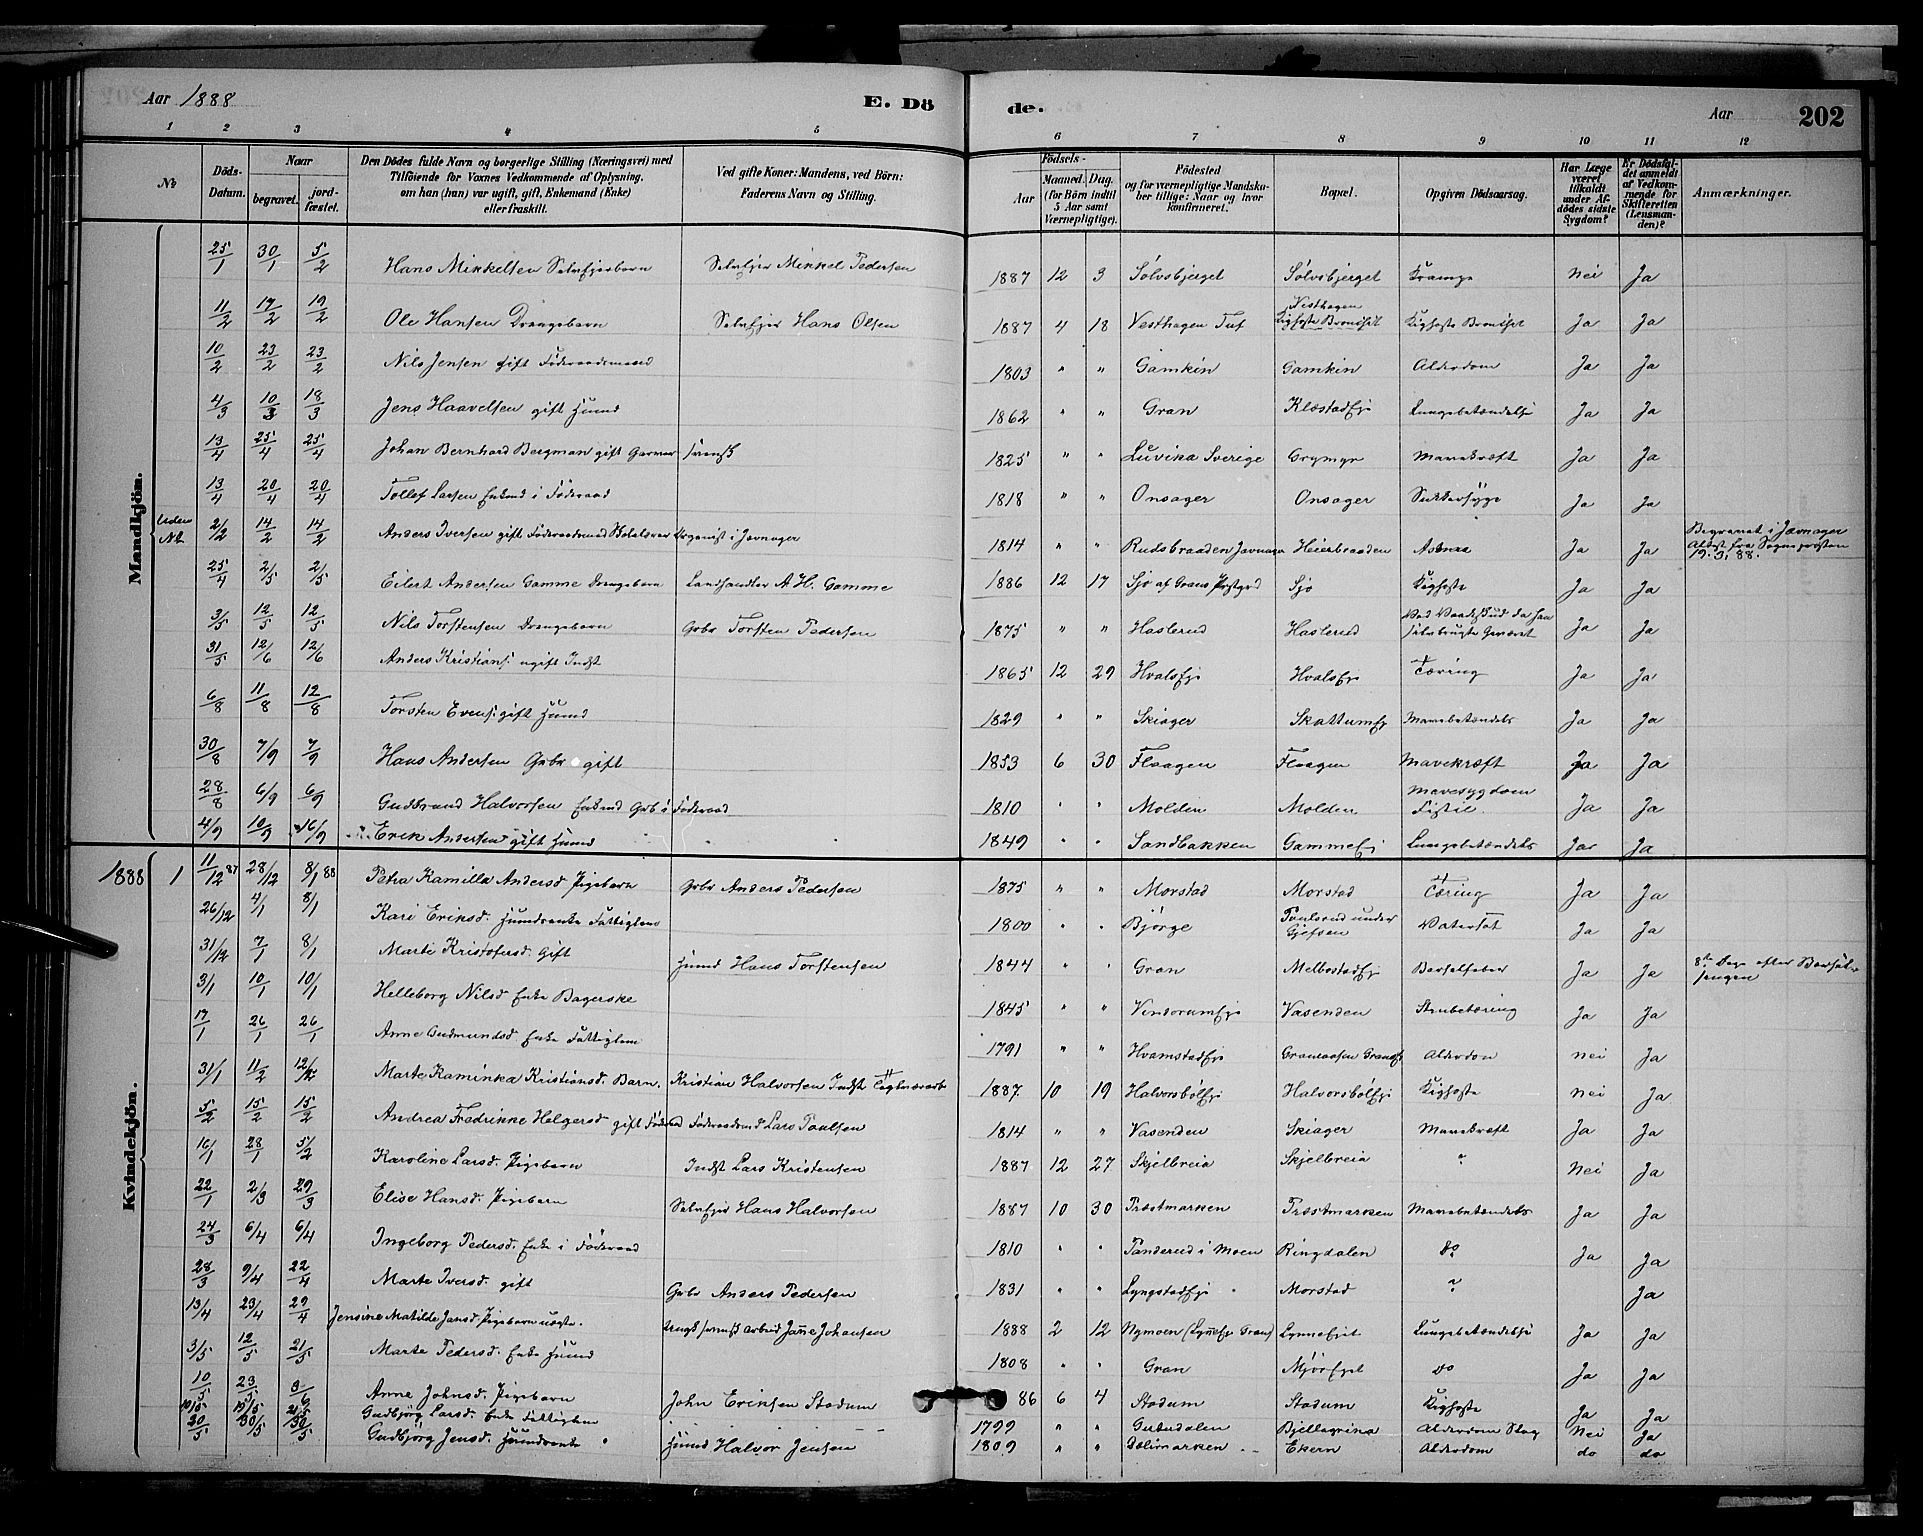 Aar 1888 E. Dö de. Aar 202
1 2 3 4 5 6 7 8 9 10 11 12
№ Döds-Datum. Naar begravet. jord-fæstet. Den Dödes fulde Navn og borgerlige Stilling (Næringsvei) med Tilföiende for Voxnes Vedkommende af Oplysning, om han (hun) var ugift, gift, Enkemand (Enke) eller fraskilt. Ved gifte Koner: Mandens, ved Börn: Faderens Navn og Stilling. Födsels- Aar Maaned. Dag. (for Börn indtil 5 Aar samt Værnepligtige). Födested og for værnepligtige Mandskaber tillige: Naar og hvor konfirmeret. Bopæl. Opgiven Dödsaarsag. Har Læge været tilkaldt under Afdödes sidste Sygdom? Er Dödsfaldet anmeldt af Vedkommende for Skifteretten (Lensmanden)? Anmærkninger.
Mandkjön.
25/1 30/1 5/2 Hans Mikkelsen Selveierbarn Selveier Mikkel Pedersen 1887 12 3 Sølvsbjerget Sølvsbjerget Krampe Nei Ja
11/2 17/2 19/2 Ole Hansen Drengebarn Selveier Hans Olsen 1887 4 18 Vesthagen Vesthagen Kighoste Bronchit Kighoste Bronchit Ja Ja
10/2 23/2 23/2 Nils Jensen gift Föderaadsmand 1803 " " Gamkin Gamkin Alderdom Ja Ja
4/3 10/3 18/3 Jens Haavelsen gift Huusmd 1862 " " Gran Klæstadeje Lungebetændelse Ja Ja
13/4 25/4 25/4 Johan Bernhard Bergman gift Garver svensk 1825 " " Luvika Sverige Grymyr Mavekræft Ja Ja
13/4 20/4 20/4 Tollef Larsen Enkemd i Föderaad 1818 " " Onsager Onsager Sukkersyge Ja Ja
Uden Nr 2/2 14/2 14/2 Anders Iversen gift Föderaadsmd Skolelærer Organist i Jevnager 1814 " " Rudsbraaden Jevnager Heierbraaden Ja Ja Begravet i Jævnager Attest fra Sognepresten 19.3.88.
25/4 2/5 2/5 Eilert Andersen Gamme Drengebarn Landhandler A. H. Gamme 1886 12 17 Sjo af Grans Prstgd Sjo Kighoste Ja Ja
3/5 12/5 12/5 Nils Torstensen Drengebarn Gbr Torsten Pedersen 1875 " " Haslerud Haslerud Ved Vaadeskud da han Ja Ja
31/5 12/6 12/6 Anders Kristians. ugift Indst 1865 12 29 Hvalseje Hvalseje Tæring Ja Ja
6/8 11/8 12/8 Torsten Evens. gift Huusmd 1829 " " Skiager Skattumeje Mavebetændels Ja Ja
30/8 7/9 7/9 Hans Andersen Gbr gift 1853 6 30 Flaagen Flaagen Mavekræft Ja Ja
28/8 6/9 6/9 Gudbrand Halvorsen Enkemd Gbr i Föderaad 1810 " " Molden Molden Mavesygdom Ja Ja
4/9 10/9 16/9 Erik Andersen gift Huusmd 1849 " " Sandbakken Gammeeje Lungebetændels Ja Ja
Kvindekjön.
1888 1 11/12 87 28/12 8/1 88 Petra Kamilla Andersd. Pigebarn Gbr Anders Pedersen 1875 " " Morstad Morstad Tæring Ja Ja
26/12 4/1 8/1 Kari Eriksd. Huusmdsenke Fattiglem 1800 " " Bjørge Paulsrud under Gjefsen Vatersot Ja Ja
31/12 7/1 8/1 Marte Kristofersd. Gift Huusmd Hans Torstensen 1844 " " Gran Melbostadeje Barselfeber Ja Ja 8de Dage efter Barsel-sengen
3/1 10/1 10/1 Helleborg Nilsd. Enke Bagerske 1845 " " Vindorumeje Vasenden Strubetæring Ja Ja
17/1 26/1 26/1 Anne Gudmundsd. Enke Fattiglem 1791 " " Hvamstadeje Alderdom Nei Ja
31/1 11/2 12/2 Marte Kaminka Kristiansd. Barn. Kristian Halvorsen Indst Teglværksarb 1887. 10 19 Halvorsböleje Halvorsböleje Kighoste Nei Ja
5/2 15/2 15/2 Andrea Fredrikke Helgersd. gift Föderaad Föderaadsmd Lars Paulsen 1814 " " Vasenden Skiager Mavekræft Ja Ja
16/1 28/1 5/2 Karoline Larsd. Pigebarn Indst Lars Kristensen 1887 12 27 Skjelbreia Skjelbreia " Nei Ja
22/1 2/3 29/3 Elise Hansd. Pigebarn Selveier Hans Halvorsen 1887 10 30 Præstmarken Præstmarken Mavebetændels Ja Ja
24/3 6/4 6/4 Ingeborg Pedersd. Enke i Föderaad 1810 " " Tanderud i Moen Ringdalen do Ja Ja
28/3 9/4 22/4 Marte Iversd. gift Gbr Anders Pedersen 1831 " " Lyngstadeje Morstad " Ja
13/4 23/4 29/4 Jensine Matilde Jansd. Pigebarn uægte. svensk arbeid Janne Johansen 1888 2 12 Nymoen (Lynneje Gran) Lynneejet Lungebetændelse Ja Ja
3/5 12/5 21/5 Marte Pedersd. Enke Huusmd 1808 " " Gran Mjörejet do Ja Ja
10/5 23/5 3/6 Anne Johnsd. Pigebarn John Eriksen Stadum 86 6 4 Stadum Stadum Kighoste Ja Ja
10/5 19/5 21/5 Gudbjörg Larsd. Enke Fattiglem 1799 " " Bjellagrina Alderdom Slag Nei Ja
20/5 30/5 30/5 Gudbjörg Jensd. Huusmdsenke Huusmd Halvor Jensen 1809 " " Dælimarken Ekern Alderdom do do